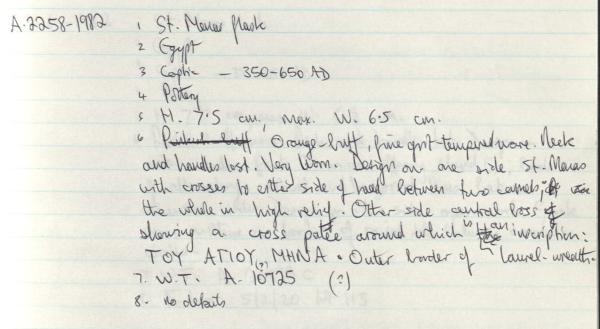 A.2258-1982 1 St. Menas flask
2 Egypt
3 Coptic – 350-650 AD
4 Pottery
5 H. 7.5 cm, max. W. 6.5 cm.
6 Pinkish-buff, Orange-buff, fine grit-tempered ware. Neck
and handles lost. Very worn. Design on one side St. Menas
with crosses to either side of head between two camels;
the whole in high relief. Other side central boss
showing a cross patée around which is an inscription:
ΤΟΥ ΑΓΙΟΥ (?) ΜΗΝΑ. Outer border of laurel-wreath.
7. W.T. A. 10725 (?)
8. no details